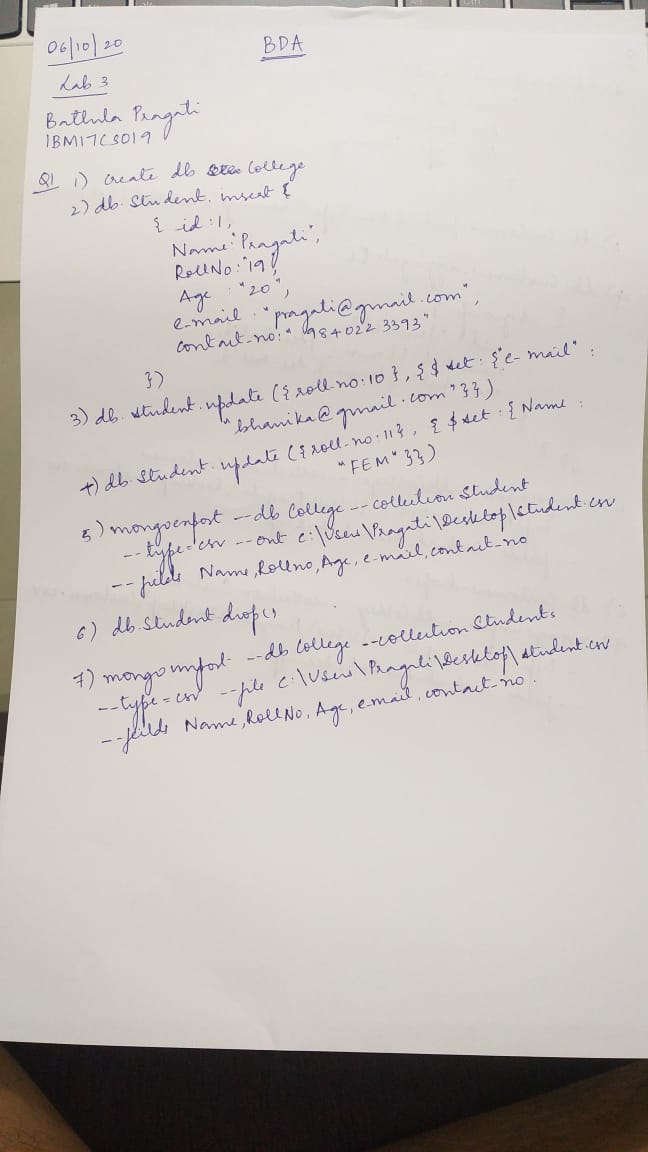 06/10/20
BDA
Lab 3
Bathula Pragati
1BM17CS019
Q1 1) create db College
2) db. Student. insert {
{ id:1,
Name:"Pragati",
RollNo:"19",
Age : "20",
e-mail : "pragati@gmail.com",
contact-no:" 984022 3393"
})
3) db. student.update ({roll-no:10}, {$set : {"e-mail" :
"bhanika@gmail.com"}})
4) db. Student. update ({roll-no:11}, {$set : {Name :
"FEM"}})
5) mongoexport --db College --collection Student
--type=csv --out c:\Users\Pragati\Desktop\student.csv
--fields Name,Rollno,Age,e-mail,contact-no
6) db.Student.drop()
7) mongoimport --db College --collection Students
--type=csv --file c:\Users\Pragati\Desktop\student.csv
--feilds Name,RollNo,Age,e-mail,contact-no.